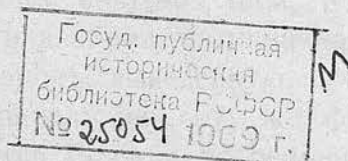 Госуд. публичная
историческая
библиотека РСФСР
№ 25054 1969 г.